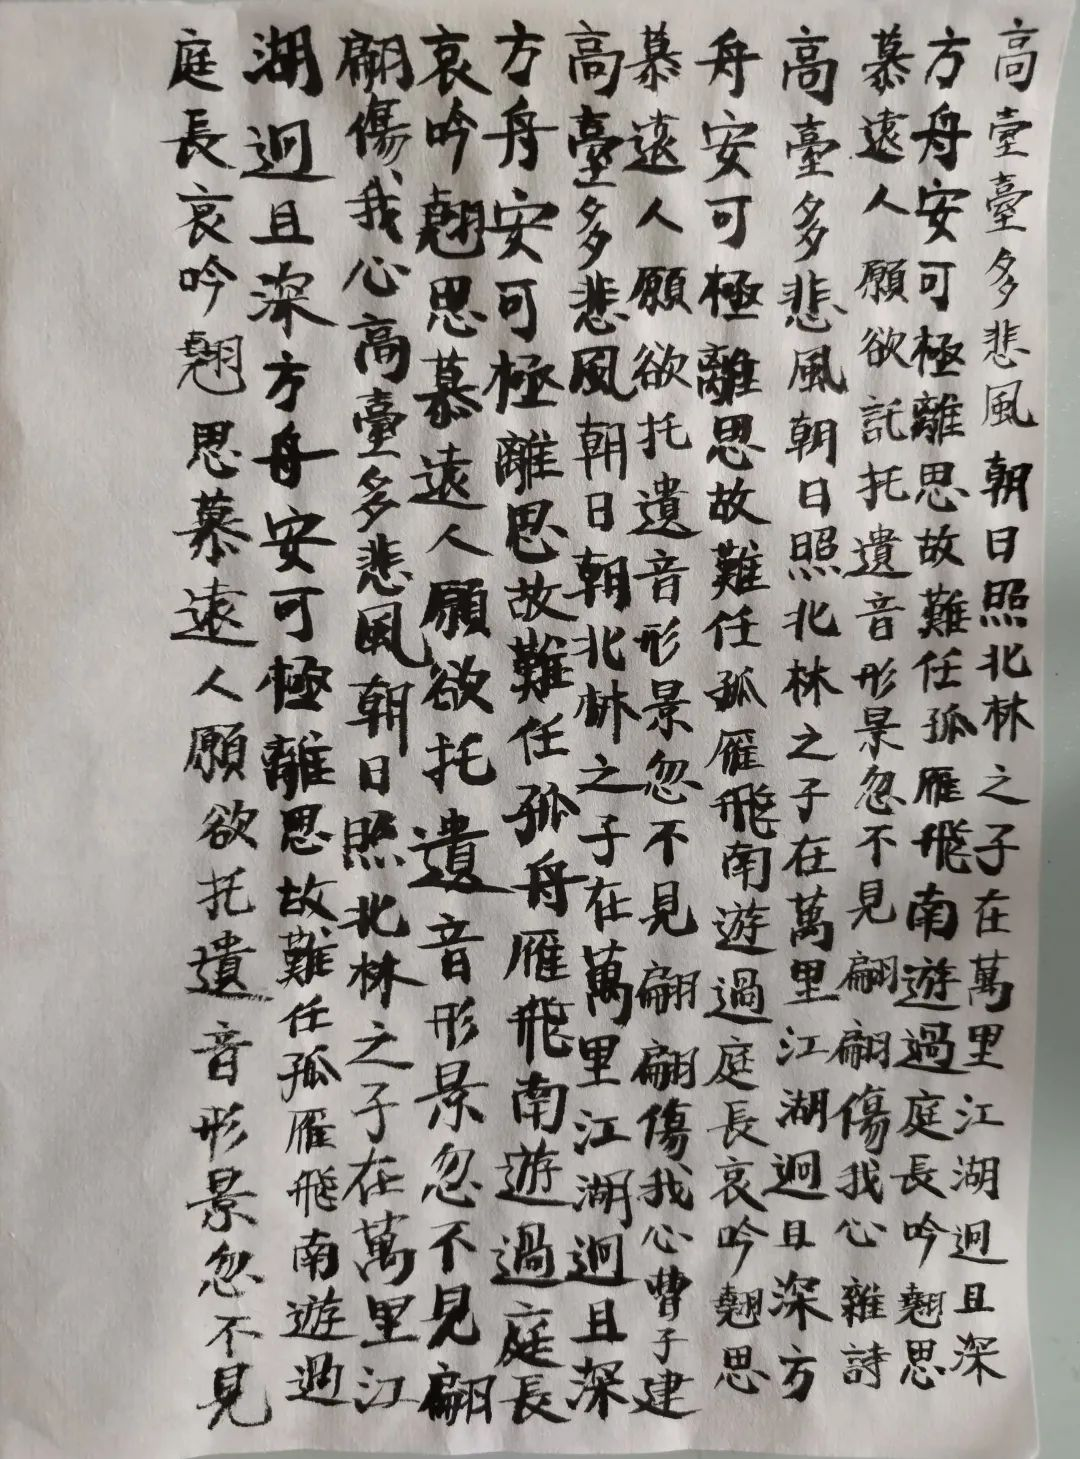 高臺臺多悲風朝日照北林之子在萬里江湖迥且深
方舟安可極離思故難任孤雁飛南遊過庭長吟翹思
慕遠人願欲託托遺音形景忽不見翩翩傷我心雜詩
高臺多悲風朝日照北林之子在萬里江湖迥且深方
舟安可極離思故難任孤雁飛南遊過庭長哀吟翹思
慕遠人願欲托遺音形景忽不見翩翩傷我心曹子建
高臺多悲風朝日朝北林之子在萬里江湖迥且深
方舟安可極離思故難任孤舟雁飛南遊過庭長
哀吟翹思慕遠人願欲托遺音形景忽不見翩
翩傷我心高臺多悲風朝日照北林之子在萬里江
湖迥且深方舟安可極離思故難任孤雁飛南遊過
庭長哀吟翹思慕遠人願欲托遺音形景忽不見